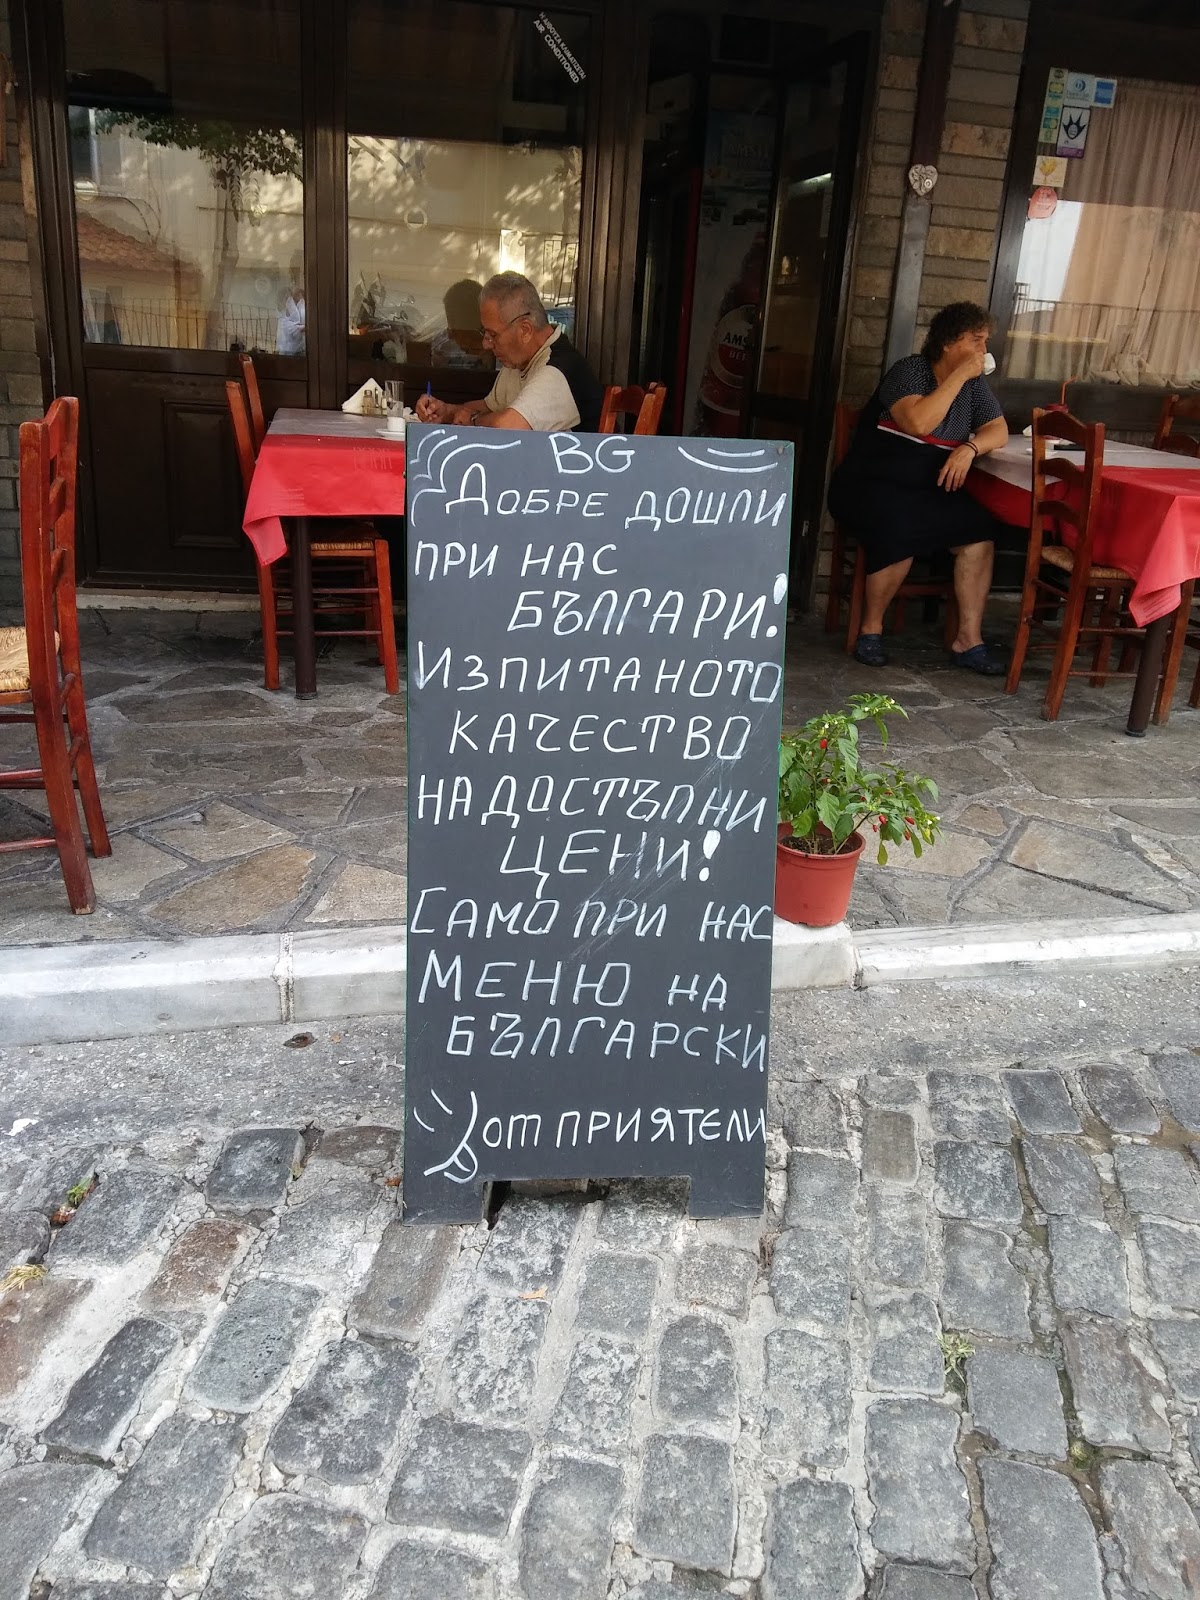 Η ΑΙΘΟΥΣΑ ΚΛΙΜΑΤΙΖΕΤΑΙ
AIR CONDITIONED
BG
ДОБРЕ ДОШЛИ
ПРИ НАС
БЪЛГАРИ!
ИЗПИТАНОТО
КАЧЕСТВО
НА ДОСТЪПНИ
ЦЕНИ!
САМО ПРИ НАС
МЕНЮ НА
БЪЛГАРСКИ
ОТ ПРИЯТЕЛИ